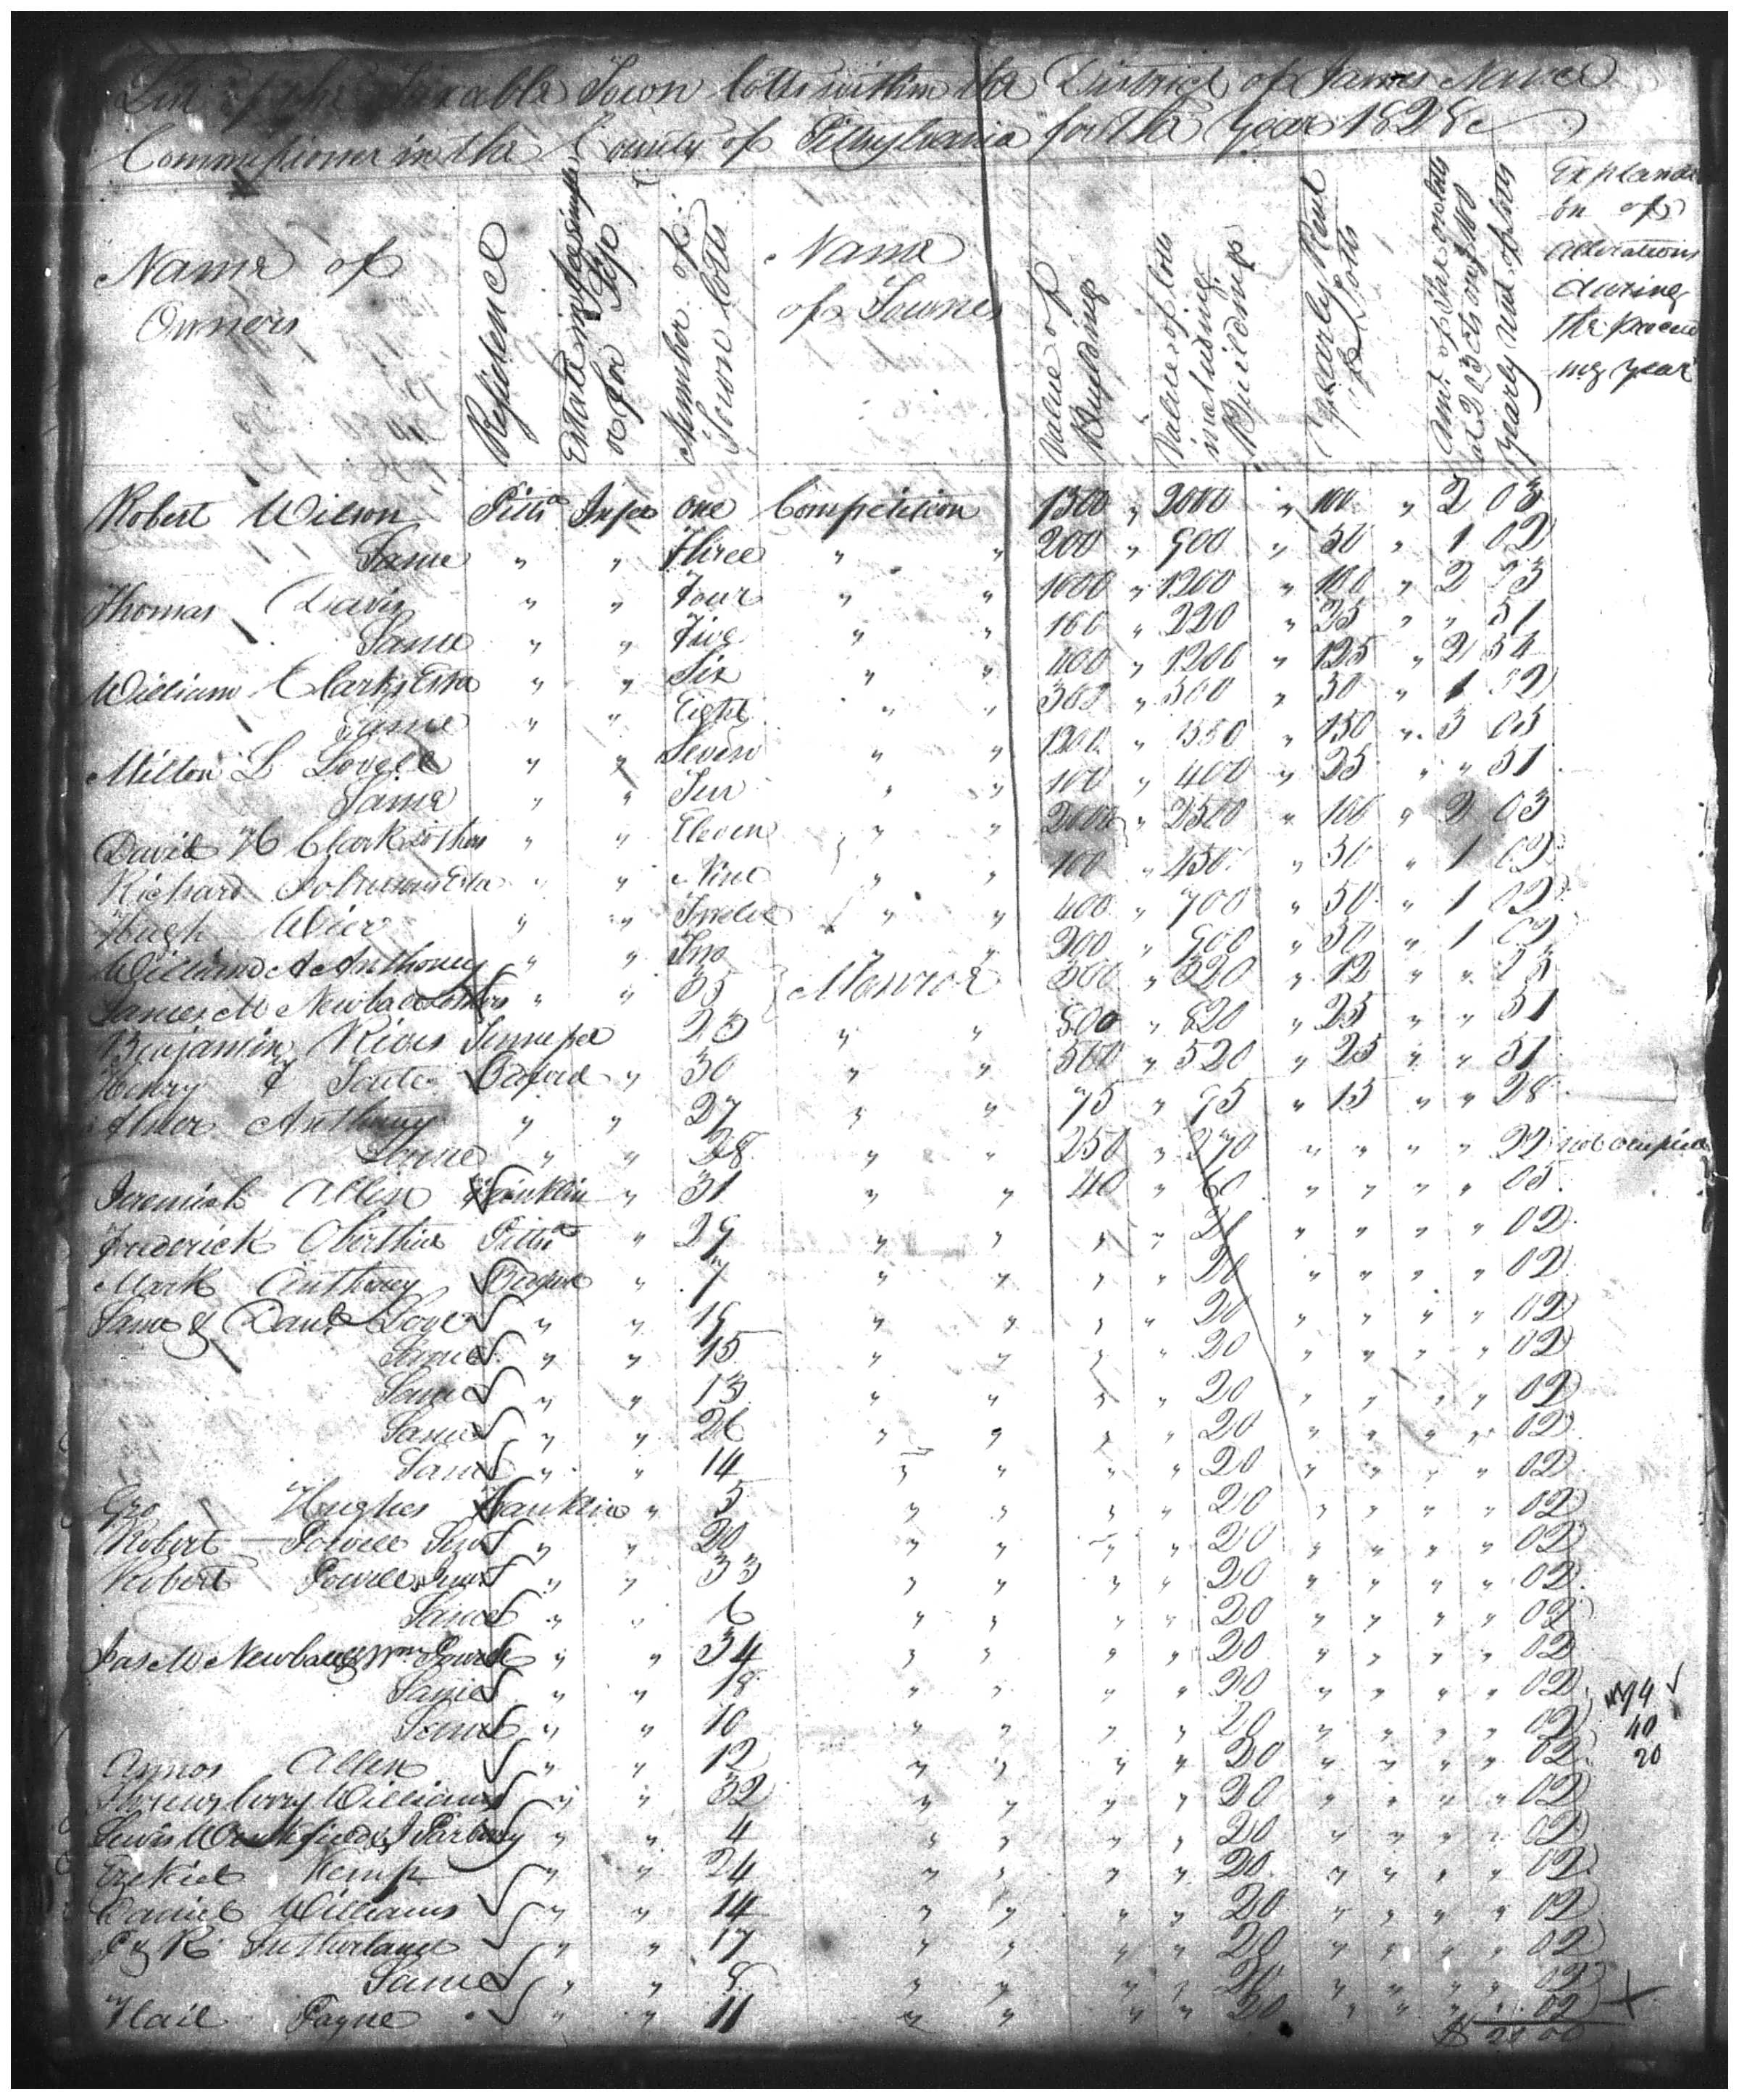 List of the Taxable Town lotts within the District of James Nance
Commissioner in the County of Pittsylvania for the Year 1828
Name of Owners
Residence
Estate in fee simple or for life
Number of Town lotts
Name of Townes
Value of Buyldings
Value of lotts including Buildings
Yearly Rent of Lotts
Amt. of tax on lotts at 2 03 cts on $100 yearly rent of lotts
Explanation of alterations during the preceeding year
Robert Wilson Pitts Infee one Competition 1500 " 2000 " 100 " 2 03
Same " " Three " " 200 " 900 " 50 " 1 02
Thomas Davis " " Four " " 1000 " 1200 " 100 " 2 03
Same " " Five " " 100 " 220 " 25 " " 51
William Clarks Esta " " Six " " 400 " 1200 " 125 " 2 54
Same " " Eight " " 300 " 500 " 50 " 1 02
Milton L Lovell " " Seven " " 1200 " 1550 " 150 " 3 05
Same " " Ten " " 100 " 400 " 25 " " 51
David H Clark & others " " Eleven " " 2000 " 2500 " 100 " 2 03
Richard Johnsons Esta " " Nine " " 100 " 450 " 50 " 1 02
Hugh Wier " " Twelve " " 400 " 700 " 50 " 1 02
William A Anthony " " Two " " 200 " 900 " 50 " 1 02
James M Newball & others " " 35 Monroe 500 " 520 " 12 " " 25
Benjamin Rives Tennessee 23 " " 800 " 820 " 25 " " 51
Henry T Bedford " 30 " " 500 " 520 " 25 " " 51
Abner Anthony " " 27 " " 75 " 95 " 15 " " 28
Same " " 28 " " 250 " 270 " " " " 22 not occupied
Jeremiah Allen Franklin " 31 " " 40 " 60 " " " " 05
Frederick Pitts " 29 " " " " 20 " " " " 02
Mark Anthony Bedford " 7 " " " " 20 " " " " 02
Same & Danl Love " " 19 " " " " 20 " " " " 02
Same " " 15 " " " " 20 " " " " 02
Same " " 13 " " " " 20 " " " " 02
Same " " 26 " " " " 20 " " " " 02
Same " " 14 " " " " 20 " " " " 02
Geo Hughes Franklin " 5 " " " " 20 " " " " 02
Robert Powell Senr " " 20 " " " " 20 " " " " 02
Robert Powell Junr " " 33 " " " " 20 " " " " 02
Same " " 6 " " " " 20 " " " " 02
Jas M Newball & Wm Powell " " 34 " " " " 20 " " " " 02
Same " " 18 " " " " 20 " " " " 02
Same " " 10 " " " " 20 " " " " 02
40
Amos Allen " " 12 " " " " 20 " " " " 02
20
Williams " " 32 " " " " 20 " " " " 02
Lewis & J " " 4 " " " " 20 " " " " 02
Ezekiel Kemp " " 24 " " " " 20 " " " " 02
Daniel Williams " " 14 " " " " 20 " " " " 02
P & R Sutherland " " 17 " " " " 20 " " " " 02
Same " " 8 " " " " 20 " " " " 02
Hail Payne " " 11 " " " " 20 " " " " 02